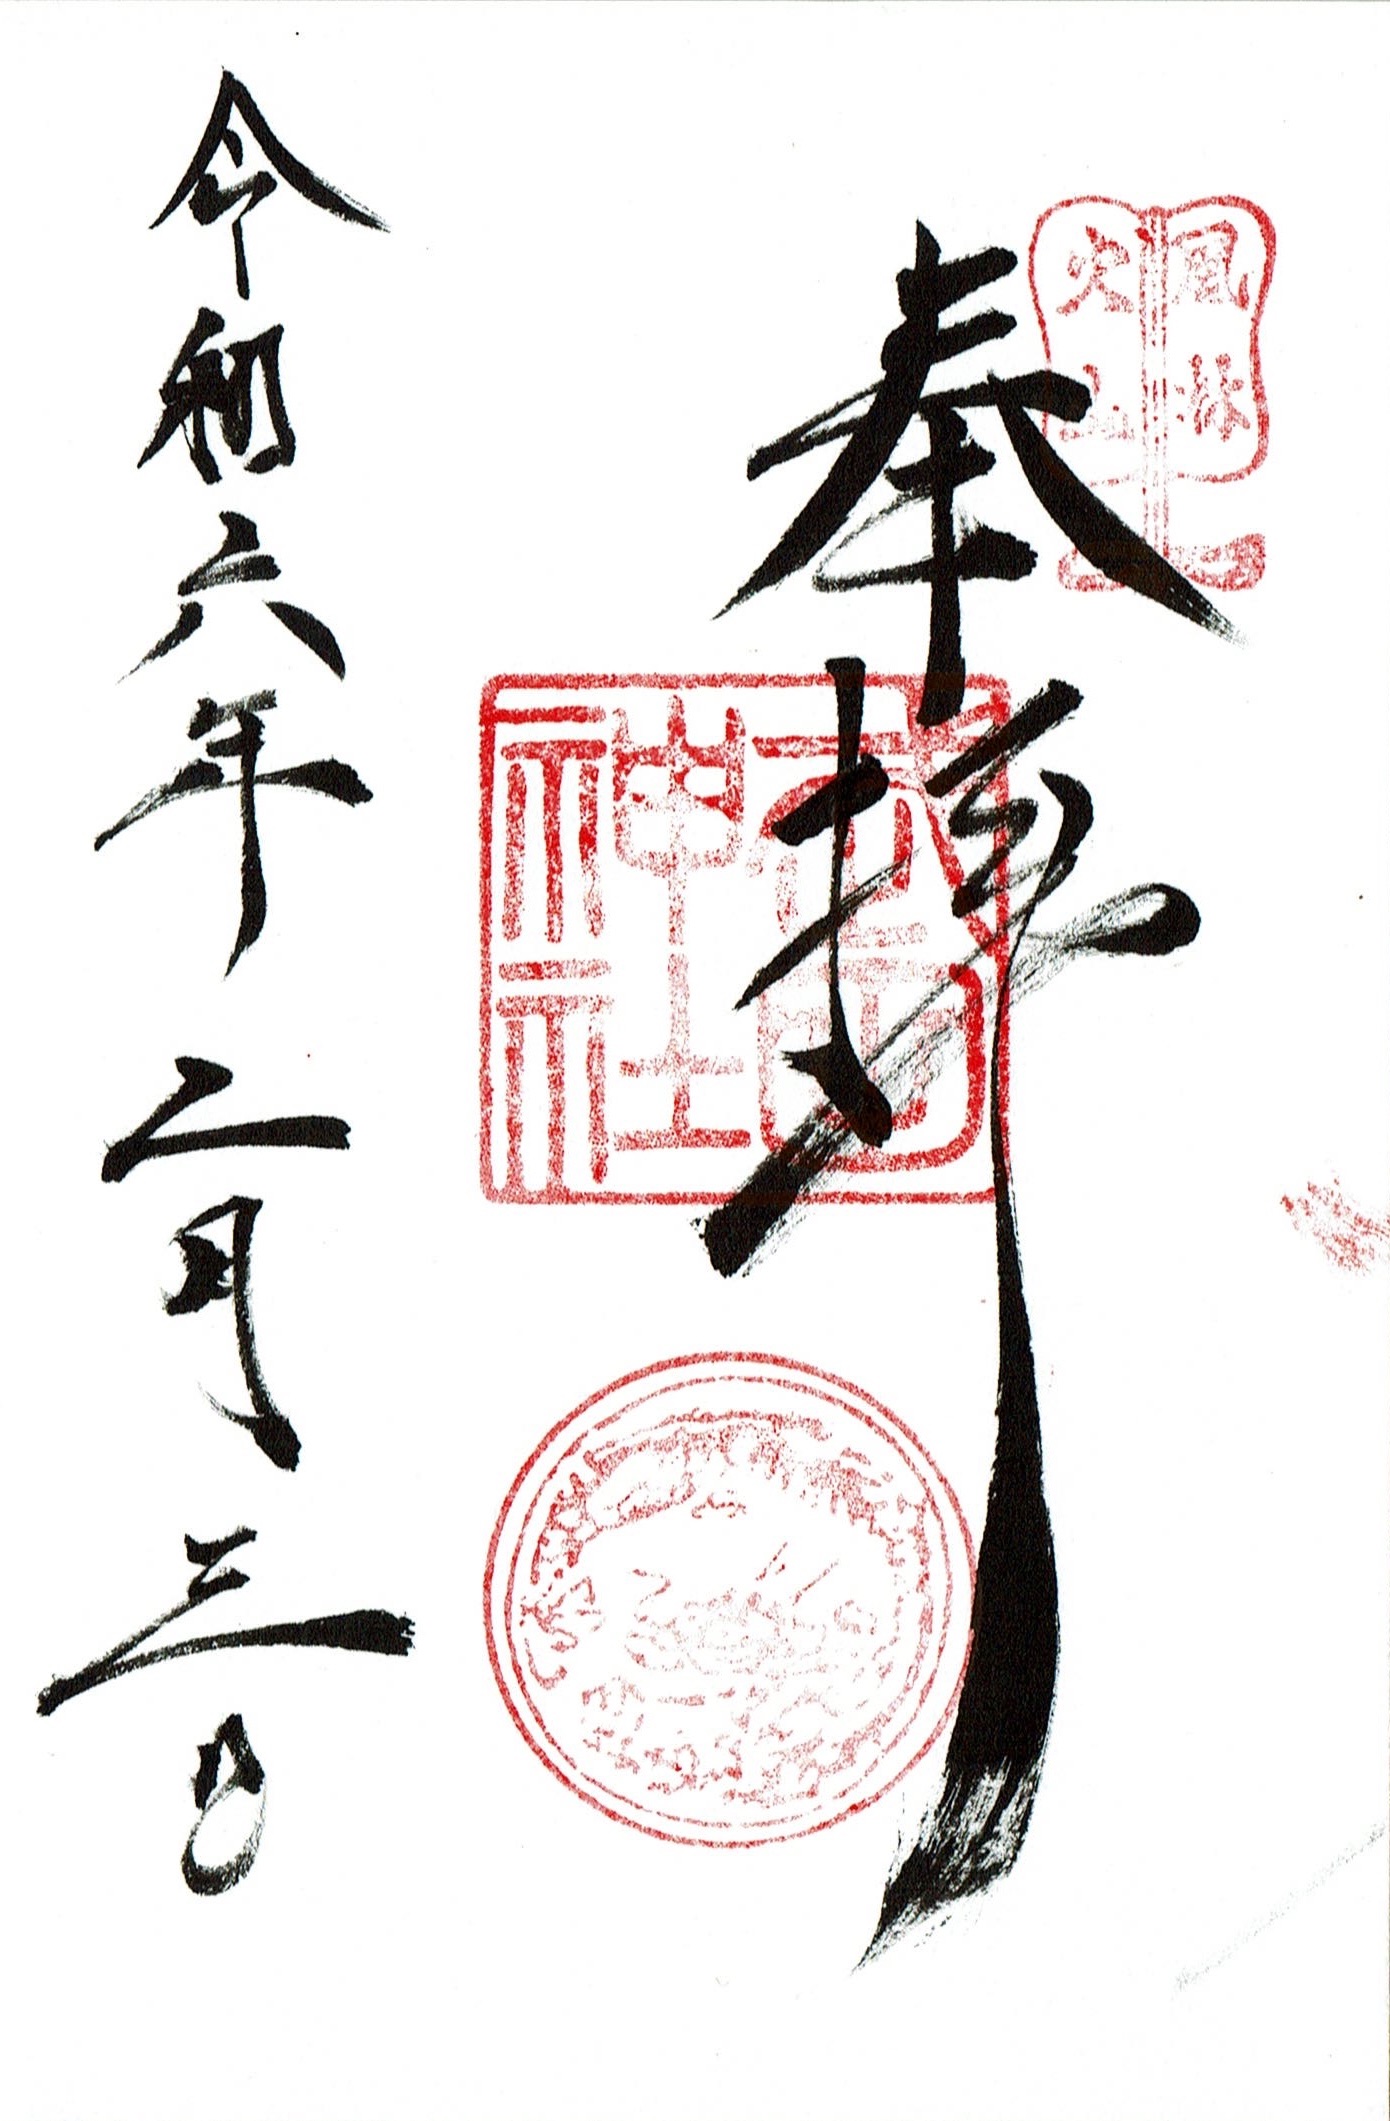 風林
火山
奉拝
武田
神社
令和六年二月三日